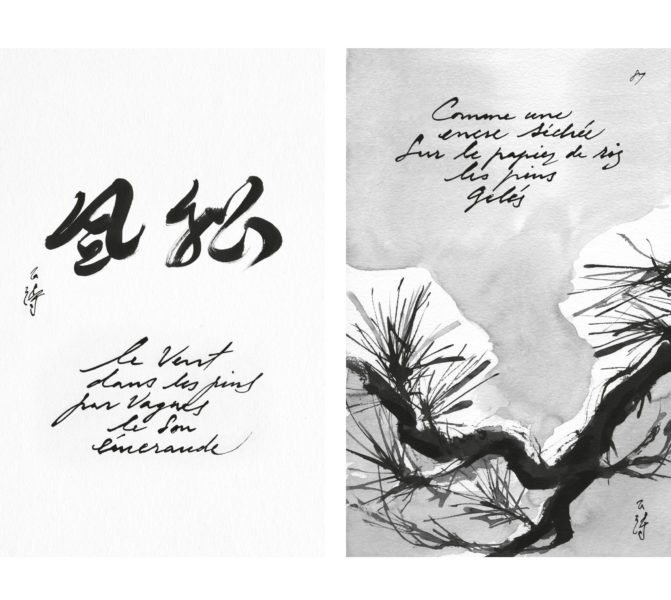 松風
le Vent
dans les pins
par Vagues
le Son
émeraude
Comme une
encre séchée
Sur le papier de riz
les pins
Gelés